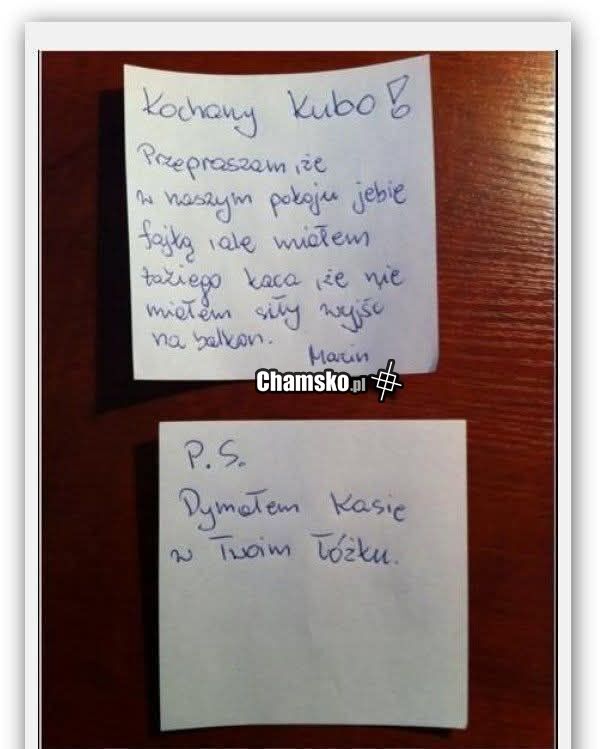 Kochany Kubo!
Przepraszam, że
w naszym pokoju jebie
fajką, ale miałem
takiego kaca, że nie
miałem siły wyjść
na balkon.
Marin
Chamsko.pl
P.S.
Dymałem Kasię
w Twoim łóżku.